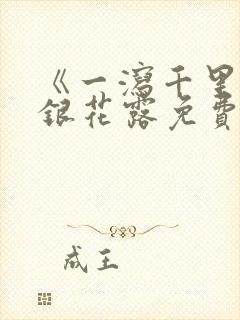 《一瀉千里
銀花露免費
成王